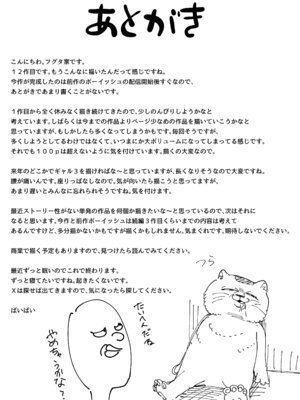 あとがき
こんにちわ、フグタ家です。
12作目です。もうこんなに描いたんだって感じですね。
今作が完成したのは前作のボーイッシュの配信開始後すぐなので、
あとがきであまり書くことがないです。
1作目から全く休みなく描き続けてきたので、少しのんびりしようかなと
考えています。しばらくは今までの作品よりページ少なめの作品を描いていこうかなと
思っていますが、もしかしたら多くなってしまうかもです。毎回そうですが、
多くしようとしてるわけではなくて、いつまにか大ボリュームになってしまってる感じです。
それでも100pは超えないように気を付けています。描くの大変なので。
来年のどこかでギャル3を描ければな～と思っていますが、長くなりそうなので大変ですね。
腰が痛いんです。座りっぱなしなので。気が向いたら描こうと思ってますが、
あまり遅いとみんなに忘れられそうですね。気を付けます。
最近ストーリー性がない単発の作品を何個か描きたいな～と思っているので、次はそれに
なると思います。今作と前作ボーイッシュは続編3作目くらいまでの内容は考えて
あるんですけど、多分描かないかもですが描くかもしれません。気まぐれです。期待しないでください。
商業で描く予定もありますので、見つけたら読んでみてください。
最近ずっと眠いのでこれで終わります。
ずっと寝てたいですね。起きたくないです。
Xは探せば出てきますので、気になったら探してください。
ばいばい
つら
たいへんだね
やめちゃうかな？